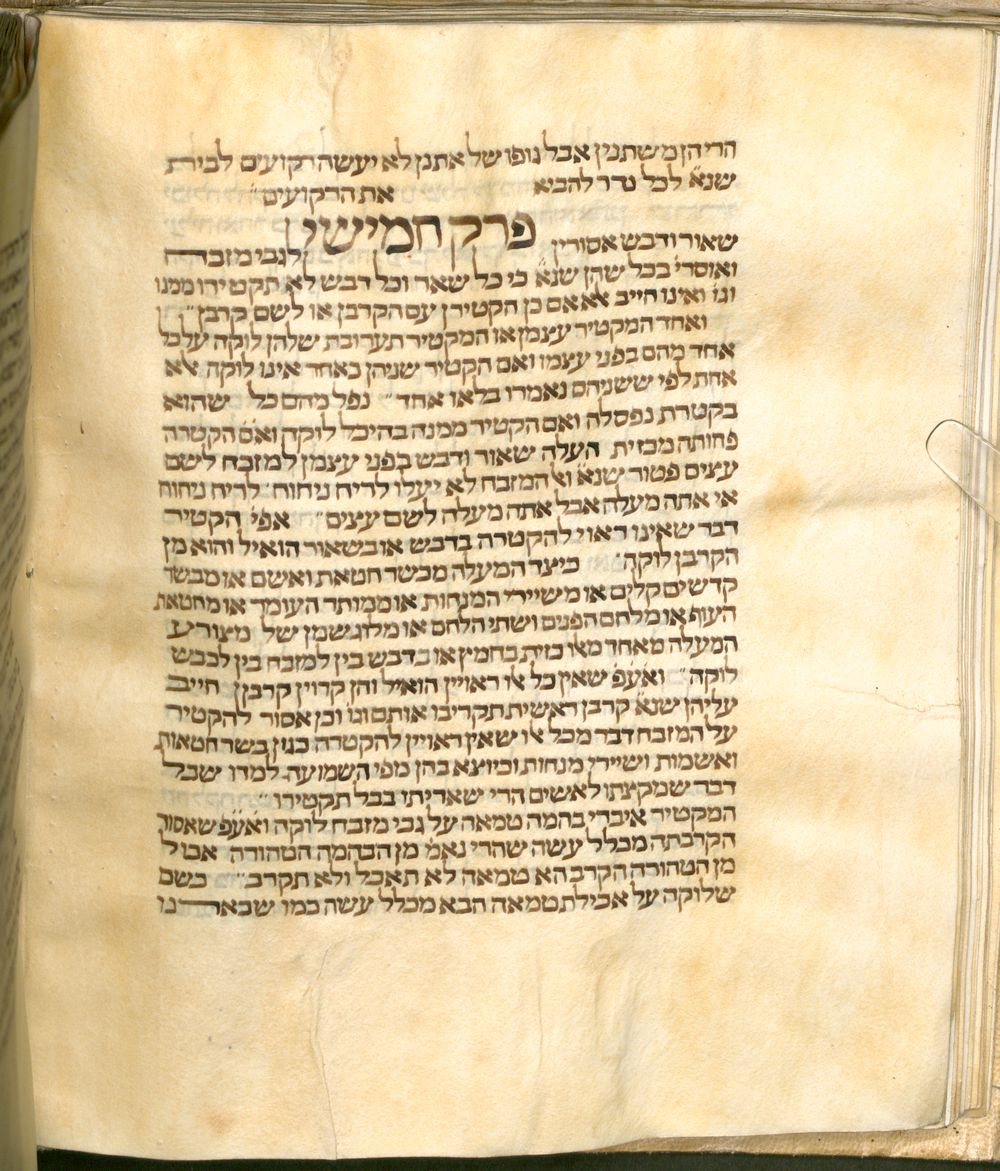 הרי הן משתנין אבל גופו של אתנן לא יעשה רקועים לבית
שנא לכל נדר להביא את הרקועים
פרק חמישי
שאור ודבש אסורין לגבי מזבח
ואוסרי בכל שהן שנא כי כל שאר וכל דבש לא תקטירו ממנו
וגו ואינו חייב אלא אם כן הקטירן עם הקרבן או לשם קרבן
ואחד המקטיר עצמן או המקטיר תערובת שלהן לוקה על כל
אחד מהם בפני עצמו ואם הקטיר שניהן כאחד אינו לוקה אלא
אחת לפי ששניהם נאמרו בלאו אחד נפל מהם כל שהוא
בקטרת נפסלה ואם הקטיר ממנה בהיכל לוקה ואם הקטרה
פחותה מכזית העלה שאור ודבש בפני עצמן למזבח לשם
עצים פטור שנא ואל המזבח לא יעלו לריח ניחוח לריח ניחוח
אי אתה מעלה אבל אתה מעלה לשם עצים אפי הקטיר
דבר שאינו ראוי להקטרה בדבש או בשאור הואיל והוא מן
הקרבן לוקה כיצד המעלה מבשר חטאת ואשם או מבשר
קדשים קלים או משיירי המנחות או ממותר העומר או מחטאת
העוף או מלחם הפנים ושתי הלחם או מלוג שמן של מצורע
המעלה מאחד מאלו כזית בחמץ או בדבש בין למזבח בין לכבש
לוקה ואעפ שאין כל אלו ראויין הואיל והן קרויין קרבן חייב
עליהן שנא קרבן ראשית תקריבו אותם וגו וכן אסור להקטיר
על המזבח דבר מכל אלו שאין ראויין להקטרה כגון בשר חטאות
ואשמות ושיירי מנחות וכיוצא בהן מפי השמועה למדו שכל
דבר שמקצתו לאשים הרי שאריתו בבל תקטירו
המקטיר איברי בהמה טמאה על גבי מזבח לוקה ואעפ שאסור
הקרבתה מכלל עשה שהרי נאמ מן הבהמה הטהורה אכול
מן הטהורה הקרב הא טמאה לא תאכל ולא תקרב כשם
שלוקה על אכילת טמאה הבא מכלל עשה כמו שבארנו